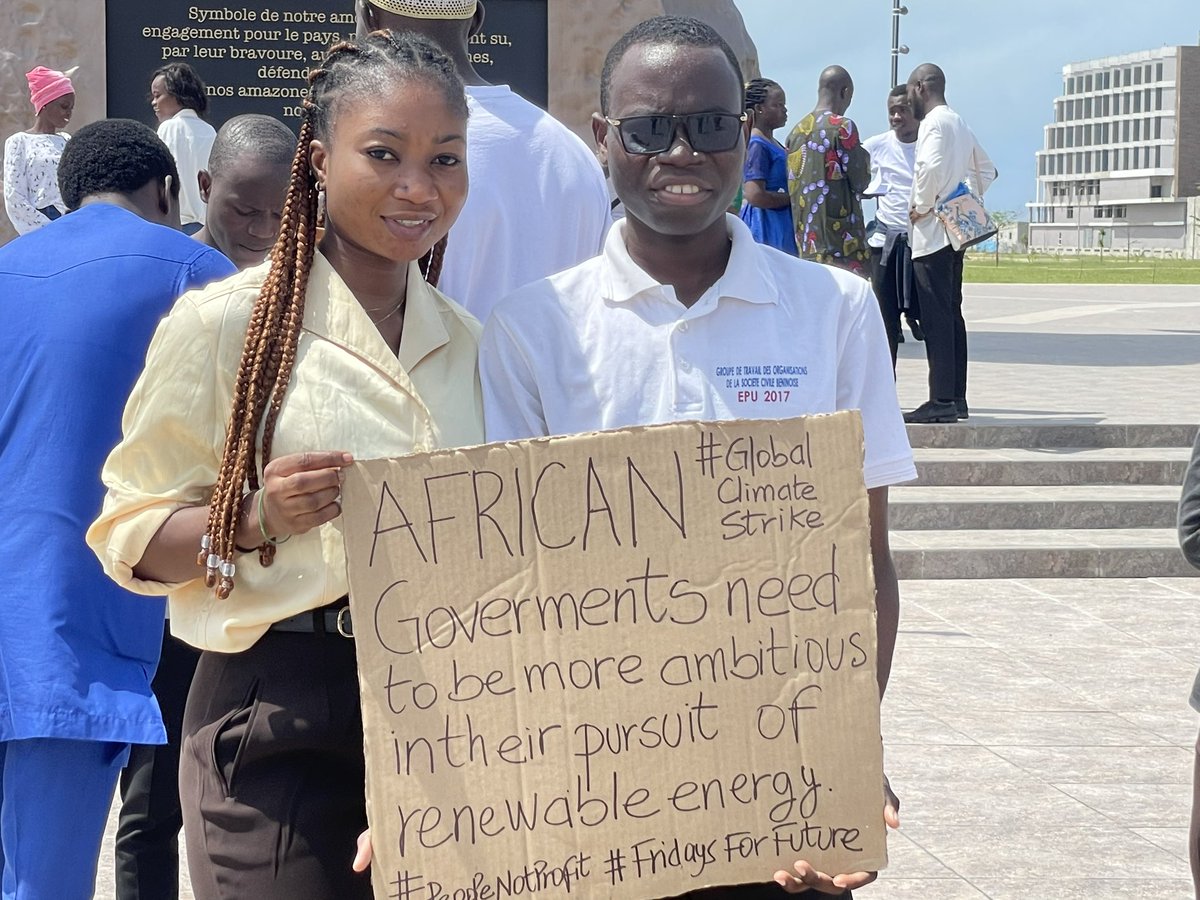 Symbole de notre
engagement pour le pays,
par leur bravoure,
défend
nos amazone
GROUPE DE TRAVAIL DES ORGANISATIONS
DE LA SOCIETE CIVILE BENINOISE
EPU 2017
AFRICAN
#Global
Climate
Strike
Goverments need
to be more ambitious
in their pursuit of
renewable energy.
#PeopleNotProfit #FridaysForFuture